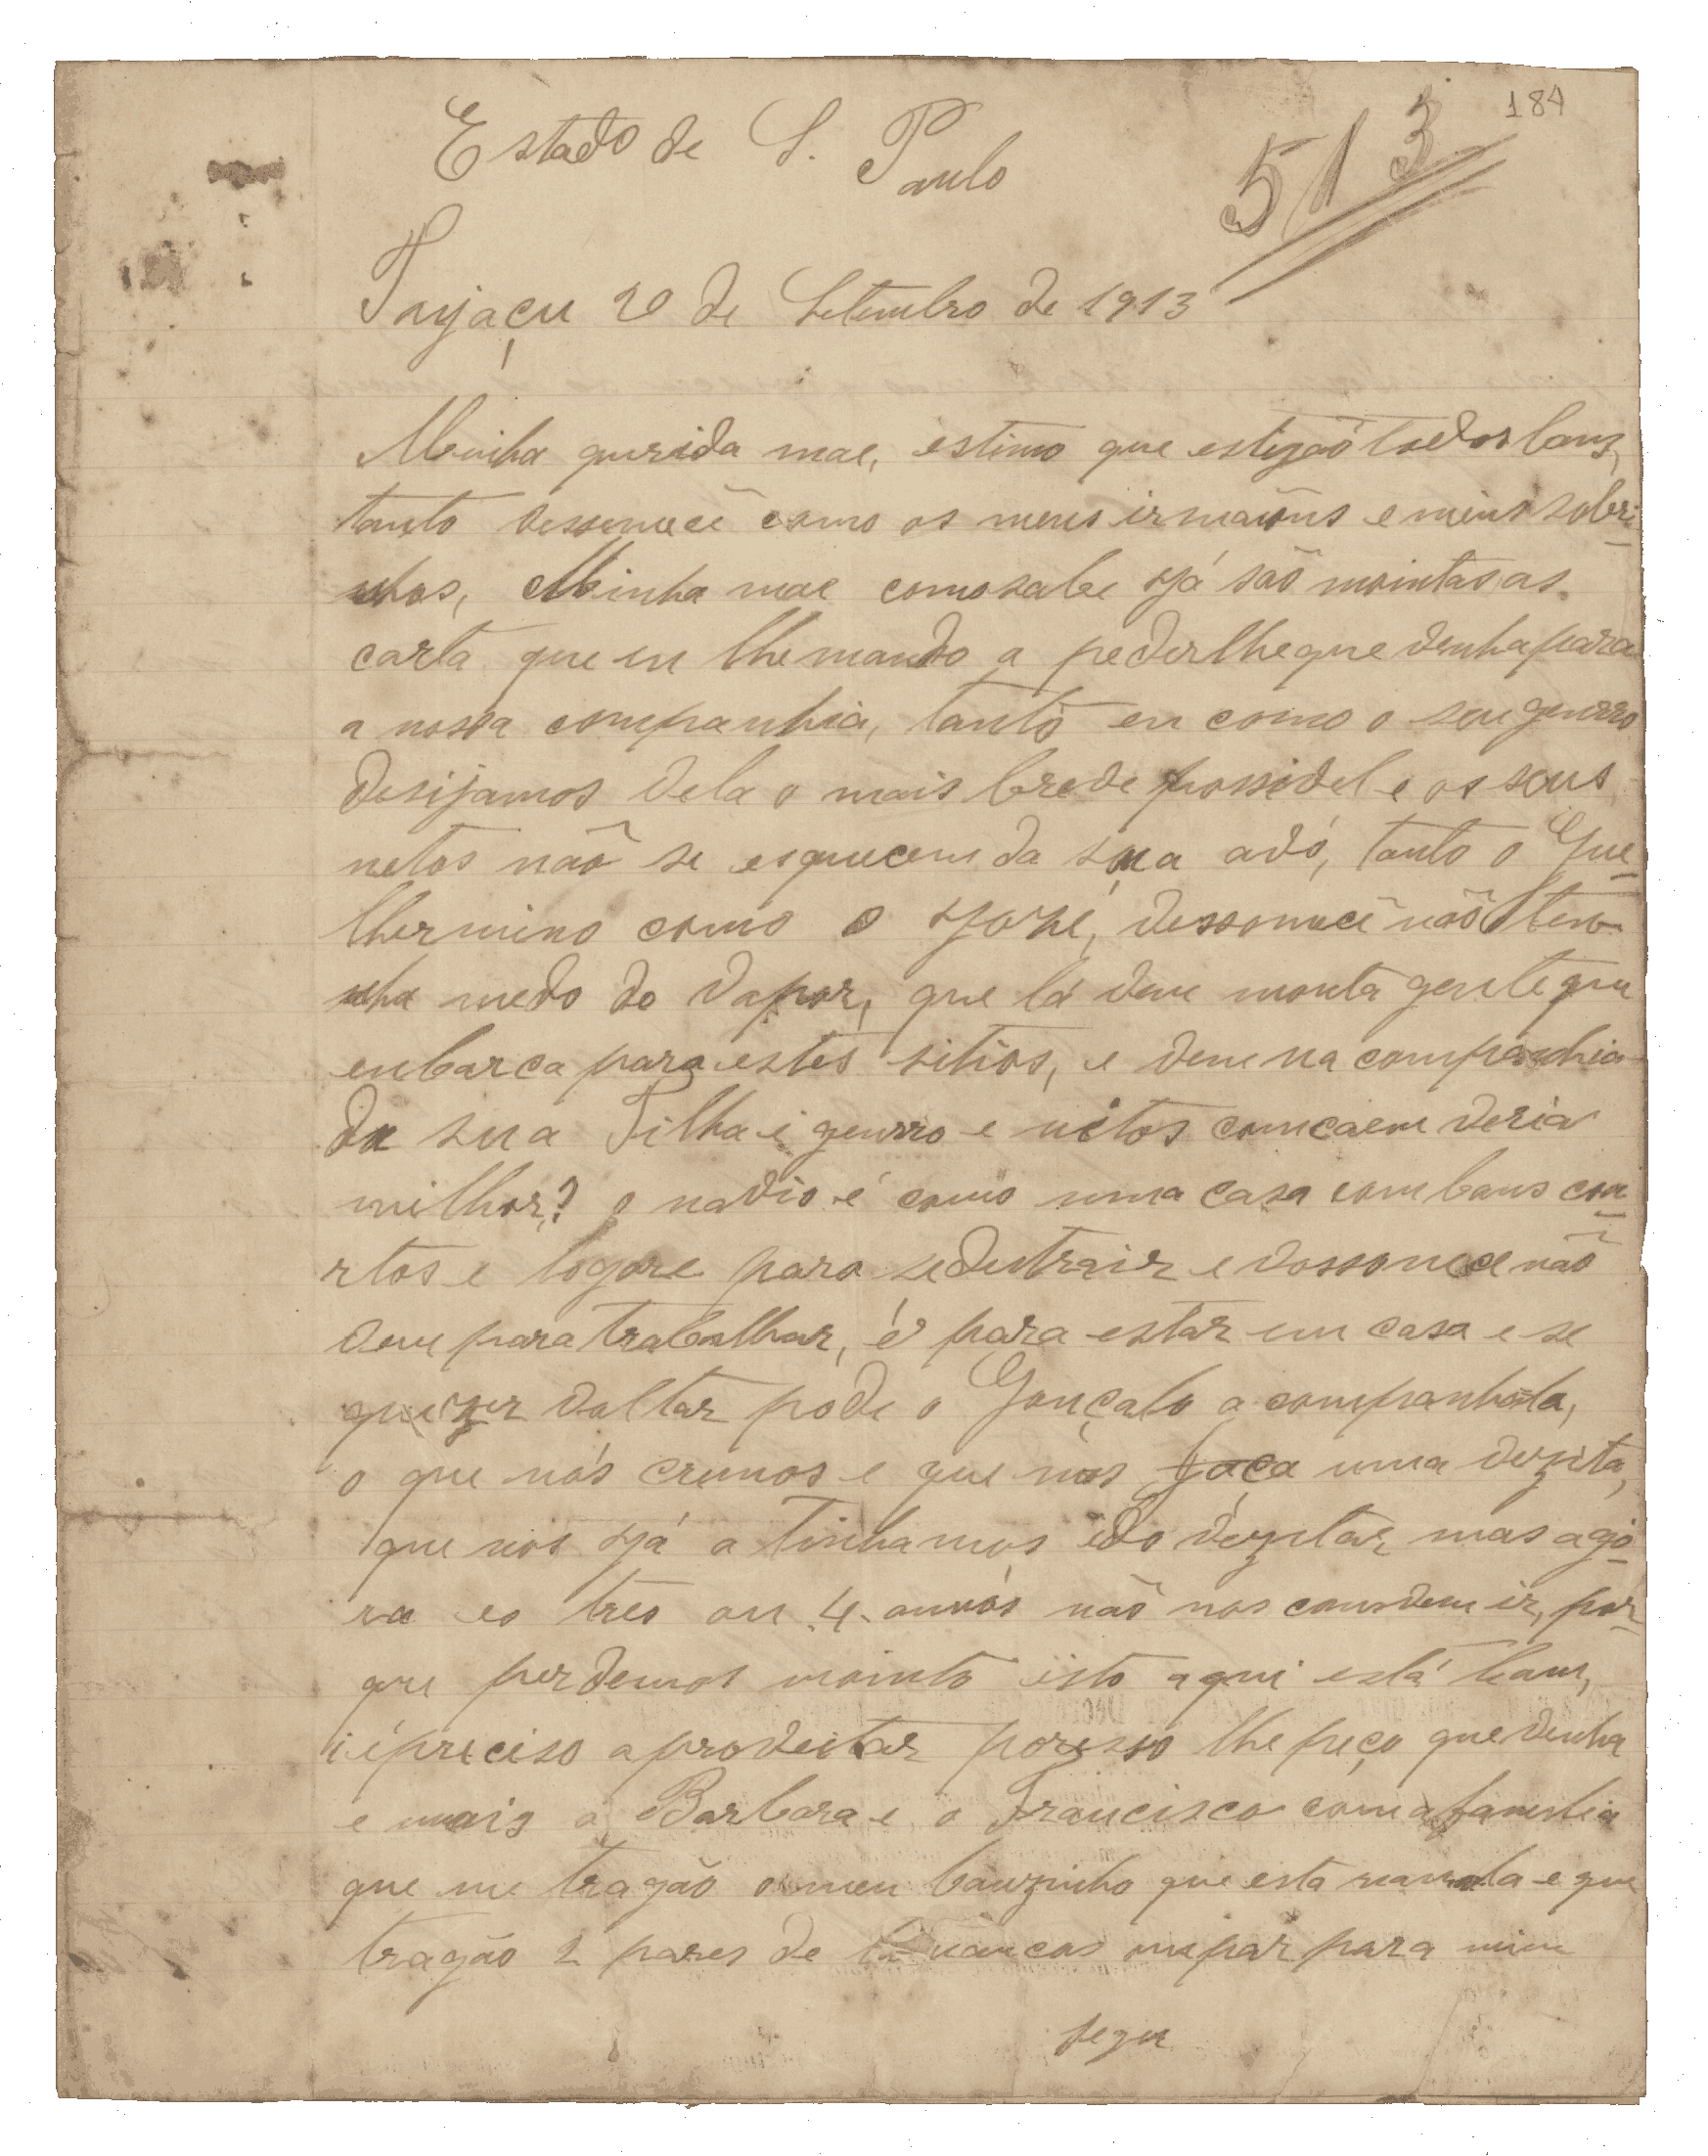 184
513
Estado de S. Paulo
Tayaçu 20 de Setembro de 1913
Minha qurida mae, estimo que estijaõ todos bons,
tanto vessemecê como os meus irmaõns e meus sobri-
nhos, Minha mae como sabe já saõ mointas as
carta que eu lhe mando a pedirlhe que venha para
a nossa companhia, tanto eu como o seu genrro
desijamos vela o mais breve possivel e os seus
netos naõ se esquecem da sua avó, tanto o Gue-
lhermino como o José, vessomecê naõ ten-
nha medo do vapor, que lá vem monta gente que
enbarca para estes sitios, e vem na companhia
da sua Filha i genrro e nitos com caem veria
milhor? o navio é como uma casa com bons coa-
rtos e logare para se destrair e vossomece naõ
vem para trabalhar, é para estar em casa e se
quezer voltar pode o Gonçalo a companhala,
o que nós cremos e que nos faça uma vezita,
que nós já a tinhamos ido vezitar mas ago-
ra es tres ou 4 annós naõ nos comvem ir, por-
que perdemos mointo isto aqui está bom,
i é preciso aproveitar porisso lhe peço que venha
e mais a Barbara e o Francisco com a familia
que me tragão o meu bauzinho que esta na e que
tragão 2 pares de um par para mim
segue